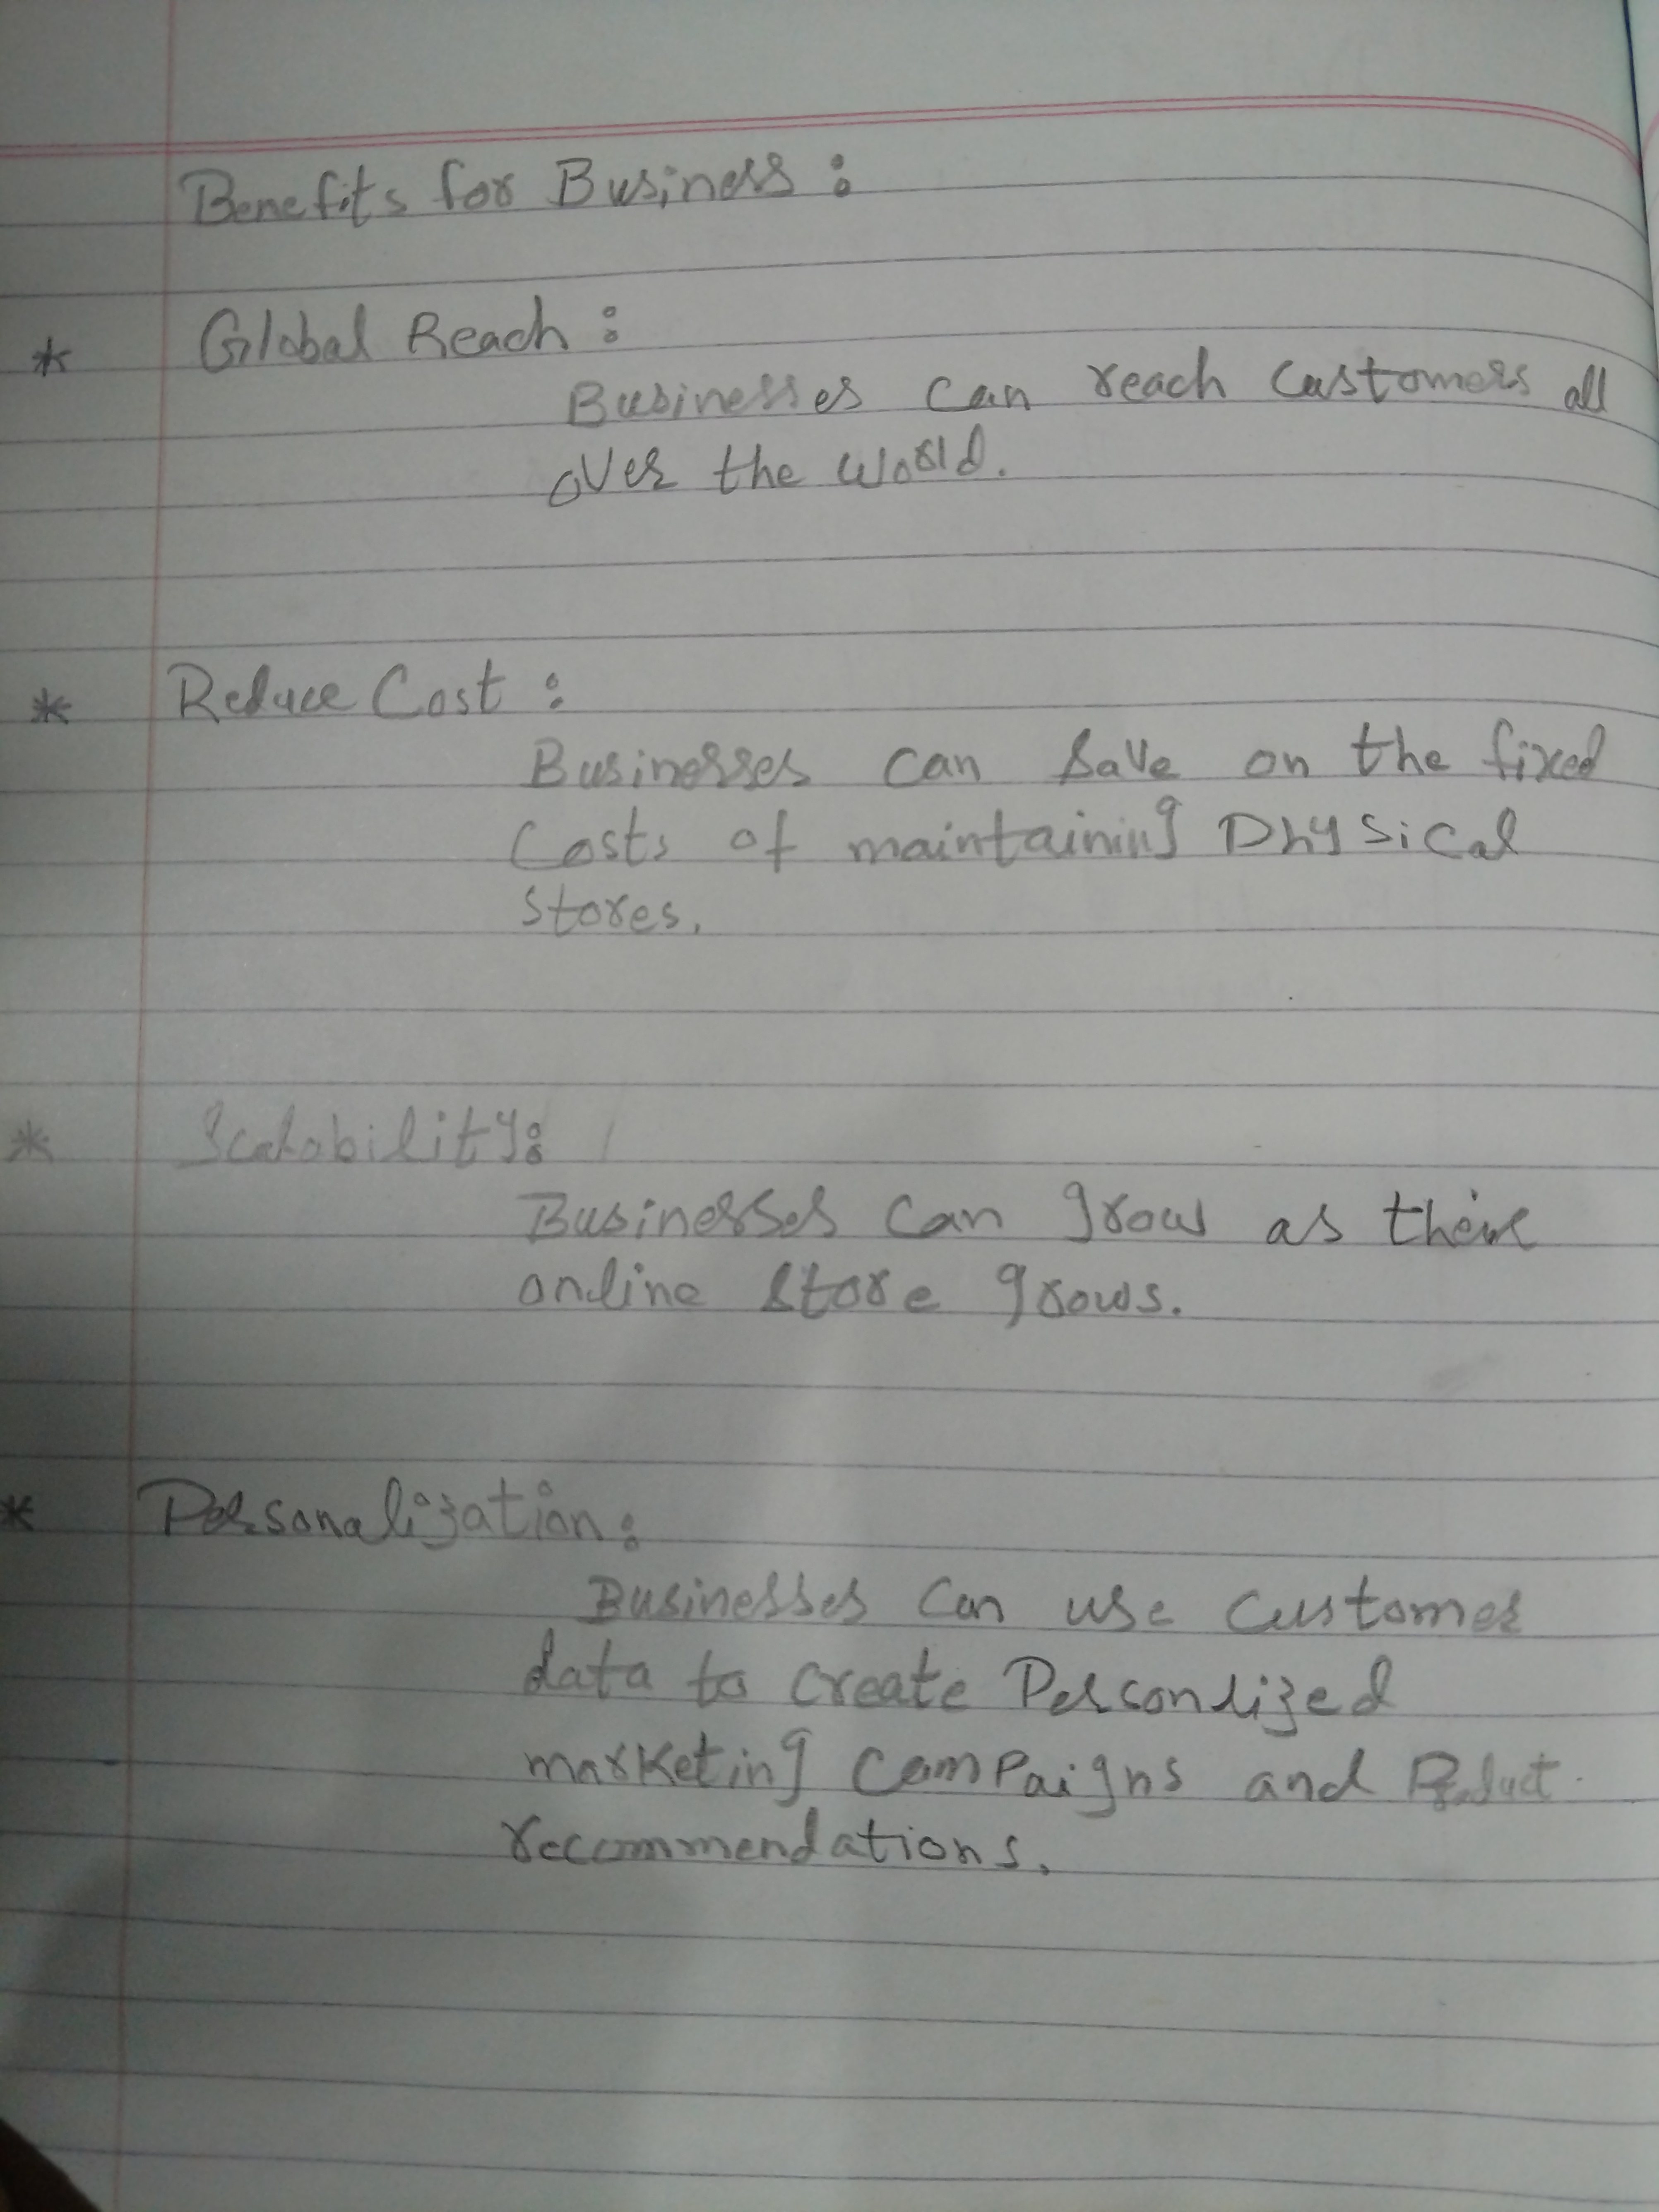 Benefits for Business :
* Global Reach :
Businesses can reach customers all
over the world.
* Reduce Cost :
Businesses can save on the fixed
Costs of maintaining Physical
stores.
* Scalability :
Businesses can grow as their
online store grows.
* Personalization :
Businesses can use customer
data to create Personalized
marketing campaigns and Product
recommendations.